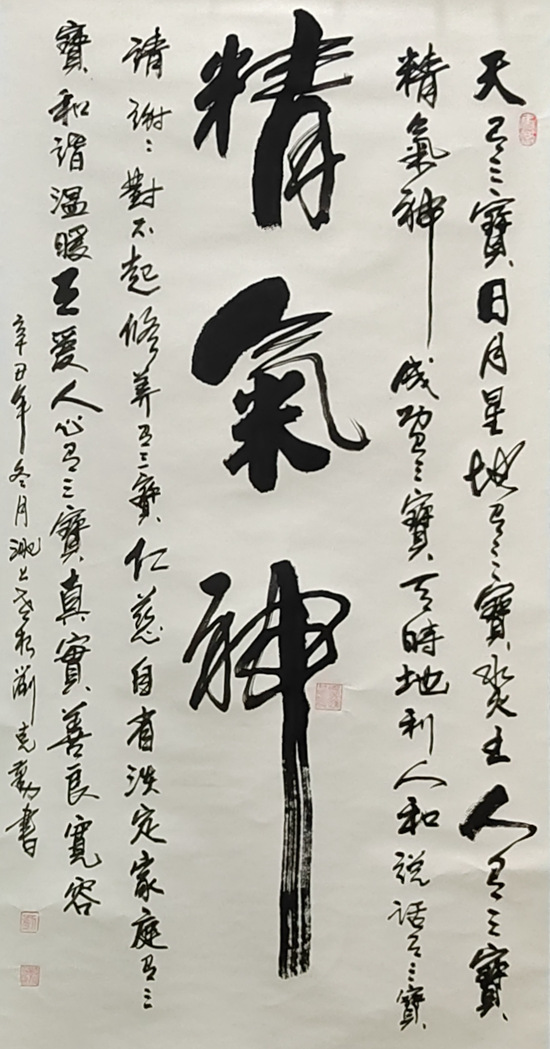 天有三寶日月星地有三寶水火土人有三寶
精氣神成功有三寶天時地利人和説話有三寶
精氣神
請謝謝對不起修養有三寶仁慈自省淡定家庭有三
寶和諧温暖互愛人心有三寶真實善良寬容
辛丑年冬月洮上老松 克勤書